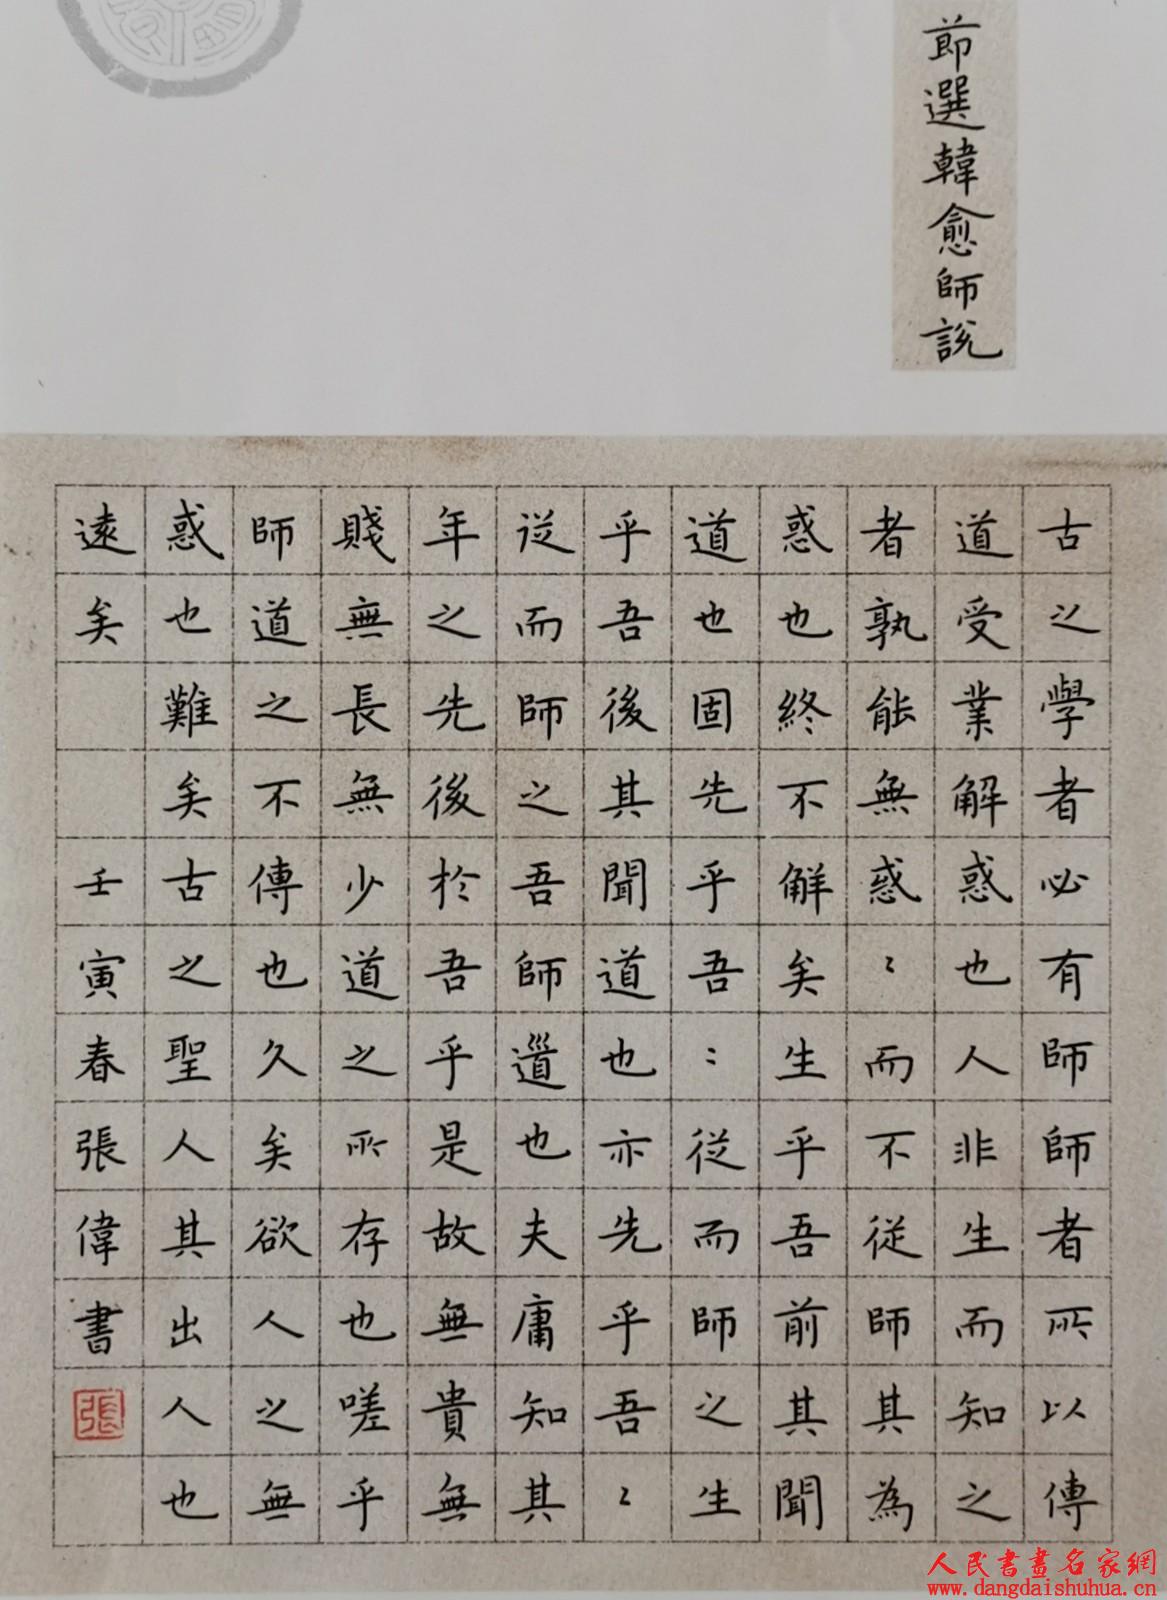 節選韓愈師説
古之學者必有師師者所以傳
道受業解惑也人非生而知之
者孰能無惑〻而不從師其為
惑也終不解矣生乎吾前其聞
道也固先乎吾〻從而師之生
乎吾後其聞道也亦先乎吾〻
從而師之吾師道也夫庸知其
年之先後於吾乎是故無貴無
賤無長無少道之所存也嗟乎
師道之不傳也久矣欲人之無
惑也難矣古之聖人其出人也
遠矣 壬寅春張偉書
張
人民書畫名家網
www.dangdaishuhua.cn